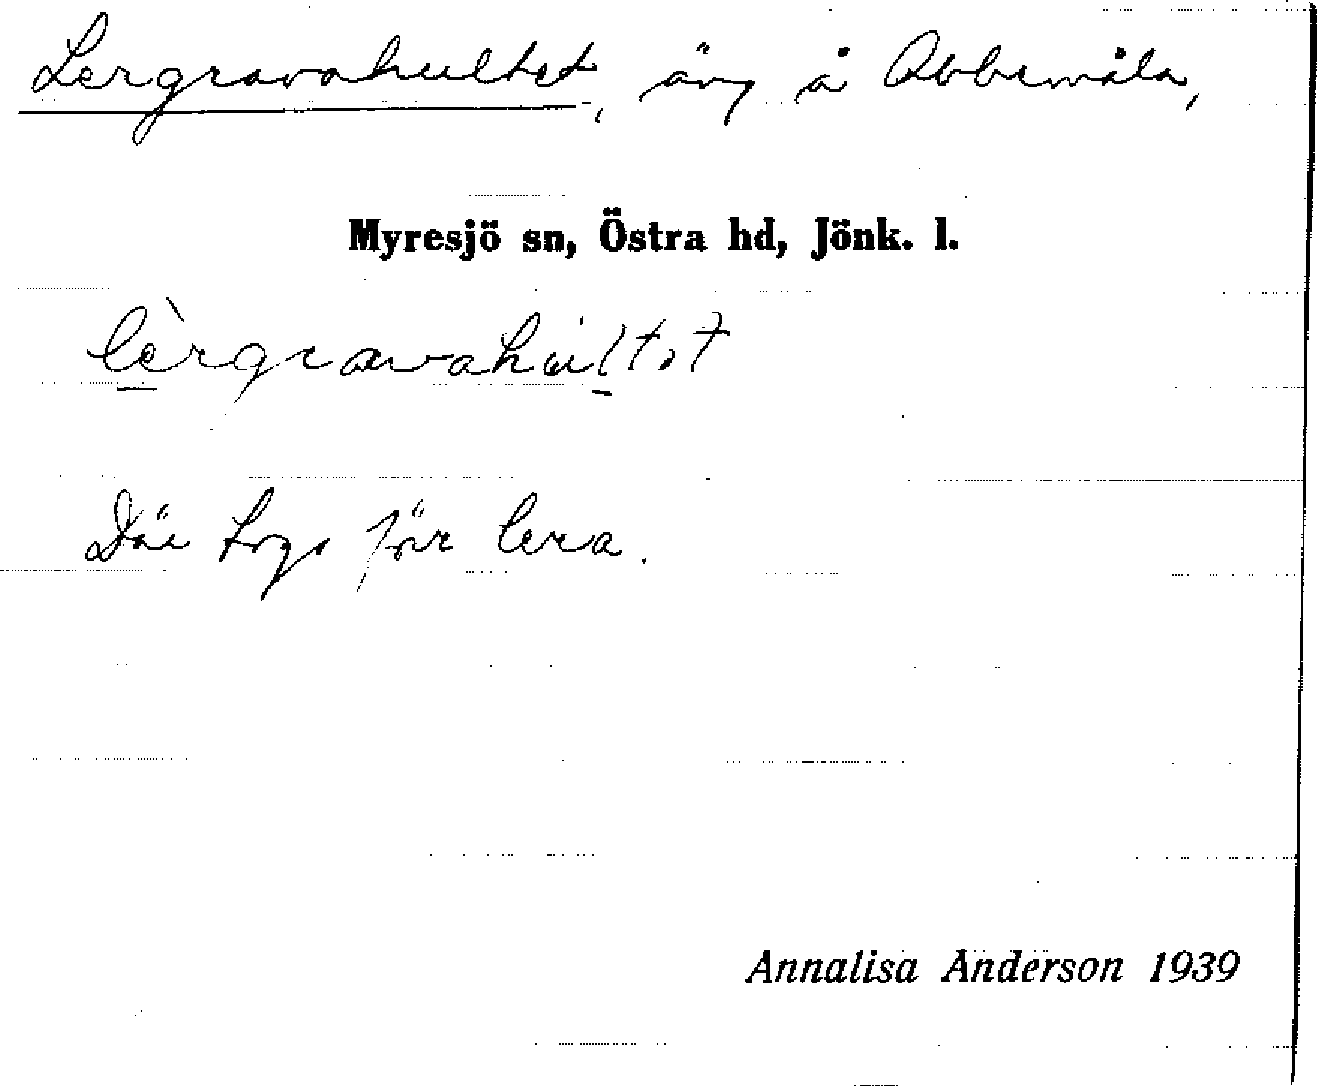 Lergravahultet, äng å Abbemåla,
Myresjö sn, Östra hd, Jönk. l.
lèrgravahultət
Där togs förr lera.
Annalisa Anderson 1939